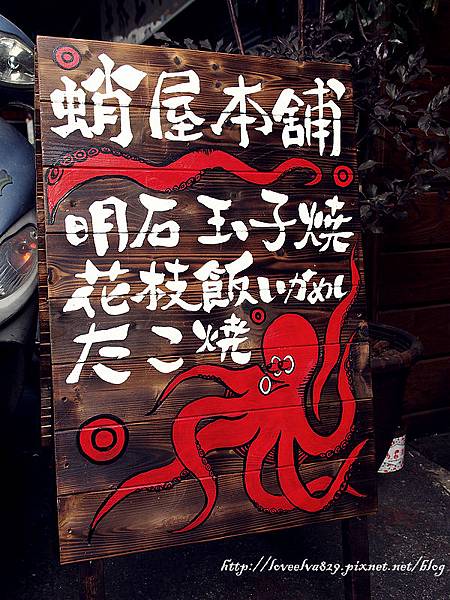 蛸屋本舖
明石 玉子燒
花枝飯いかめし
たこ燒
http://loveelva829.pixnet.net/blog